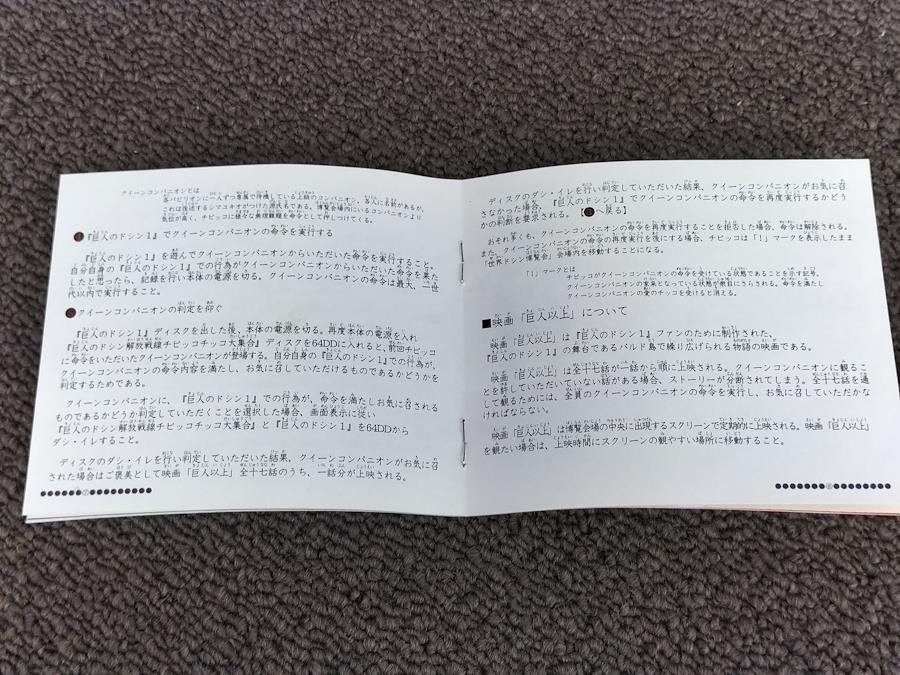 クイーンコンパニオンとは
各パビリオンに一人ずつ専属で待機している上級のコンパニオン。各人に名前があるが、
これは後述するシマユキオがつけた源氏名である。博覧会場内にいるコンパニオンより
気位が高く、チビッコに様々な無理難題を命令として押しつけてくる。
『巨人のドシン1』でクイーンコンパニオンの命令を実行する
『巨人のドシン1』を遊んでクイーンコンパニオンからいただいた命令を実行すること。
自分自身の『巨人のドシン1』での行為がクイーンコンパニオンからいただいた命令を果た
したと思ったら、記録を行い本体の電源を切る。クイーンコンパニオンの命令は最大、一世
代以内で実行すること。
クイーンコンパニオンの判定を仰ぐ
『巨人のドシン1』ディスクを出した後、本体の電源を切る。再度本体の電源を入れ
『巨人のドシン解放戦線チビッコチッコ大集合』ディスクを64DDに入れると、前回チビッコ
に命令をいただいたクイーンコンパニオンが登場する。自分自身の『巨人のドシン1』での行為が、
クイーンコンパニオンの命令内容を満たし、お気に召していただけるものであるかどうかを
判定するためである。
クイーンコンパニオンに、『巨人のドシン1』での行為が、命令を満たしお気に召される
ものであるかどうか判定していただくことを選択した場合、画面表示に従い
『巨人のドシン解放戦線チビッコチッコ大集合』と『巨人のドシン1』を64DDから
ダシ・イレすること。
ディスクのダシ・イレを行い判定していただいた結果、クイーンコンパニオンがお気に召
された場合はご褒美として映画「巨人以上」全十七話のうち、一話分が上映される。
ディスクのダシ・イレを行い判定していただいた結果、クイーンコンパニオンがお気に召
さなかった場合、『巨人のドシン1』でクイーンコンパニオンの命令を再度実行するかどう
かの判断を要求される。【へ戻る】
おそれ多くも、クイーンコンパニオンの命令を再度実行することを拒否した場合、命令は解除される。
また、クイーンコンパニオンの命令の再度実行を後にする場合、チビッコは「！」マークを表示したまま
「世界ドシン博覧会」会場内を移動することになる。
「！」マークとは
チビッコがクイーンコンパニオンの命令を受けている状態であることを示す記号。
クイーンコンパニオンの家来となっている状態が衆目にさらされる。命令を満たし
クイーンコンパニオンの愛のチッコを受けると消える。
■映画「巨人以上」について
映画「巨人以上」は『巨人のドシン1』ファンのために制作された、
『巨人のドシン1』の舞台であるバルド島で繰り広げられる物語の映画である。
映画「巨人以上」は全十七話が一話から順に上映される。クイーンコンパニオンに観るこ
とを許していただいていない話がある場合、ストーリーが分断されてしまう。全十七話を通
して観るためには、全員のクイーンコンパニオンの命令を実行し、お気に召していただかな
ければならない。
映画「巨人以上」は博覧会場の中央に出現するスクリーンで定期的に上映される。映画「巨人以上」
を観たい場合は、上映時間にスクリーンの観やすい場所に移動すること。